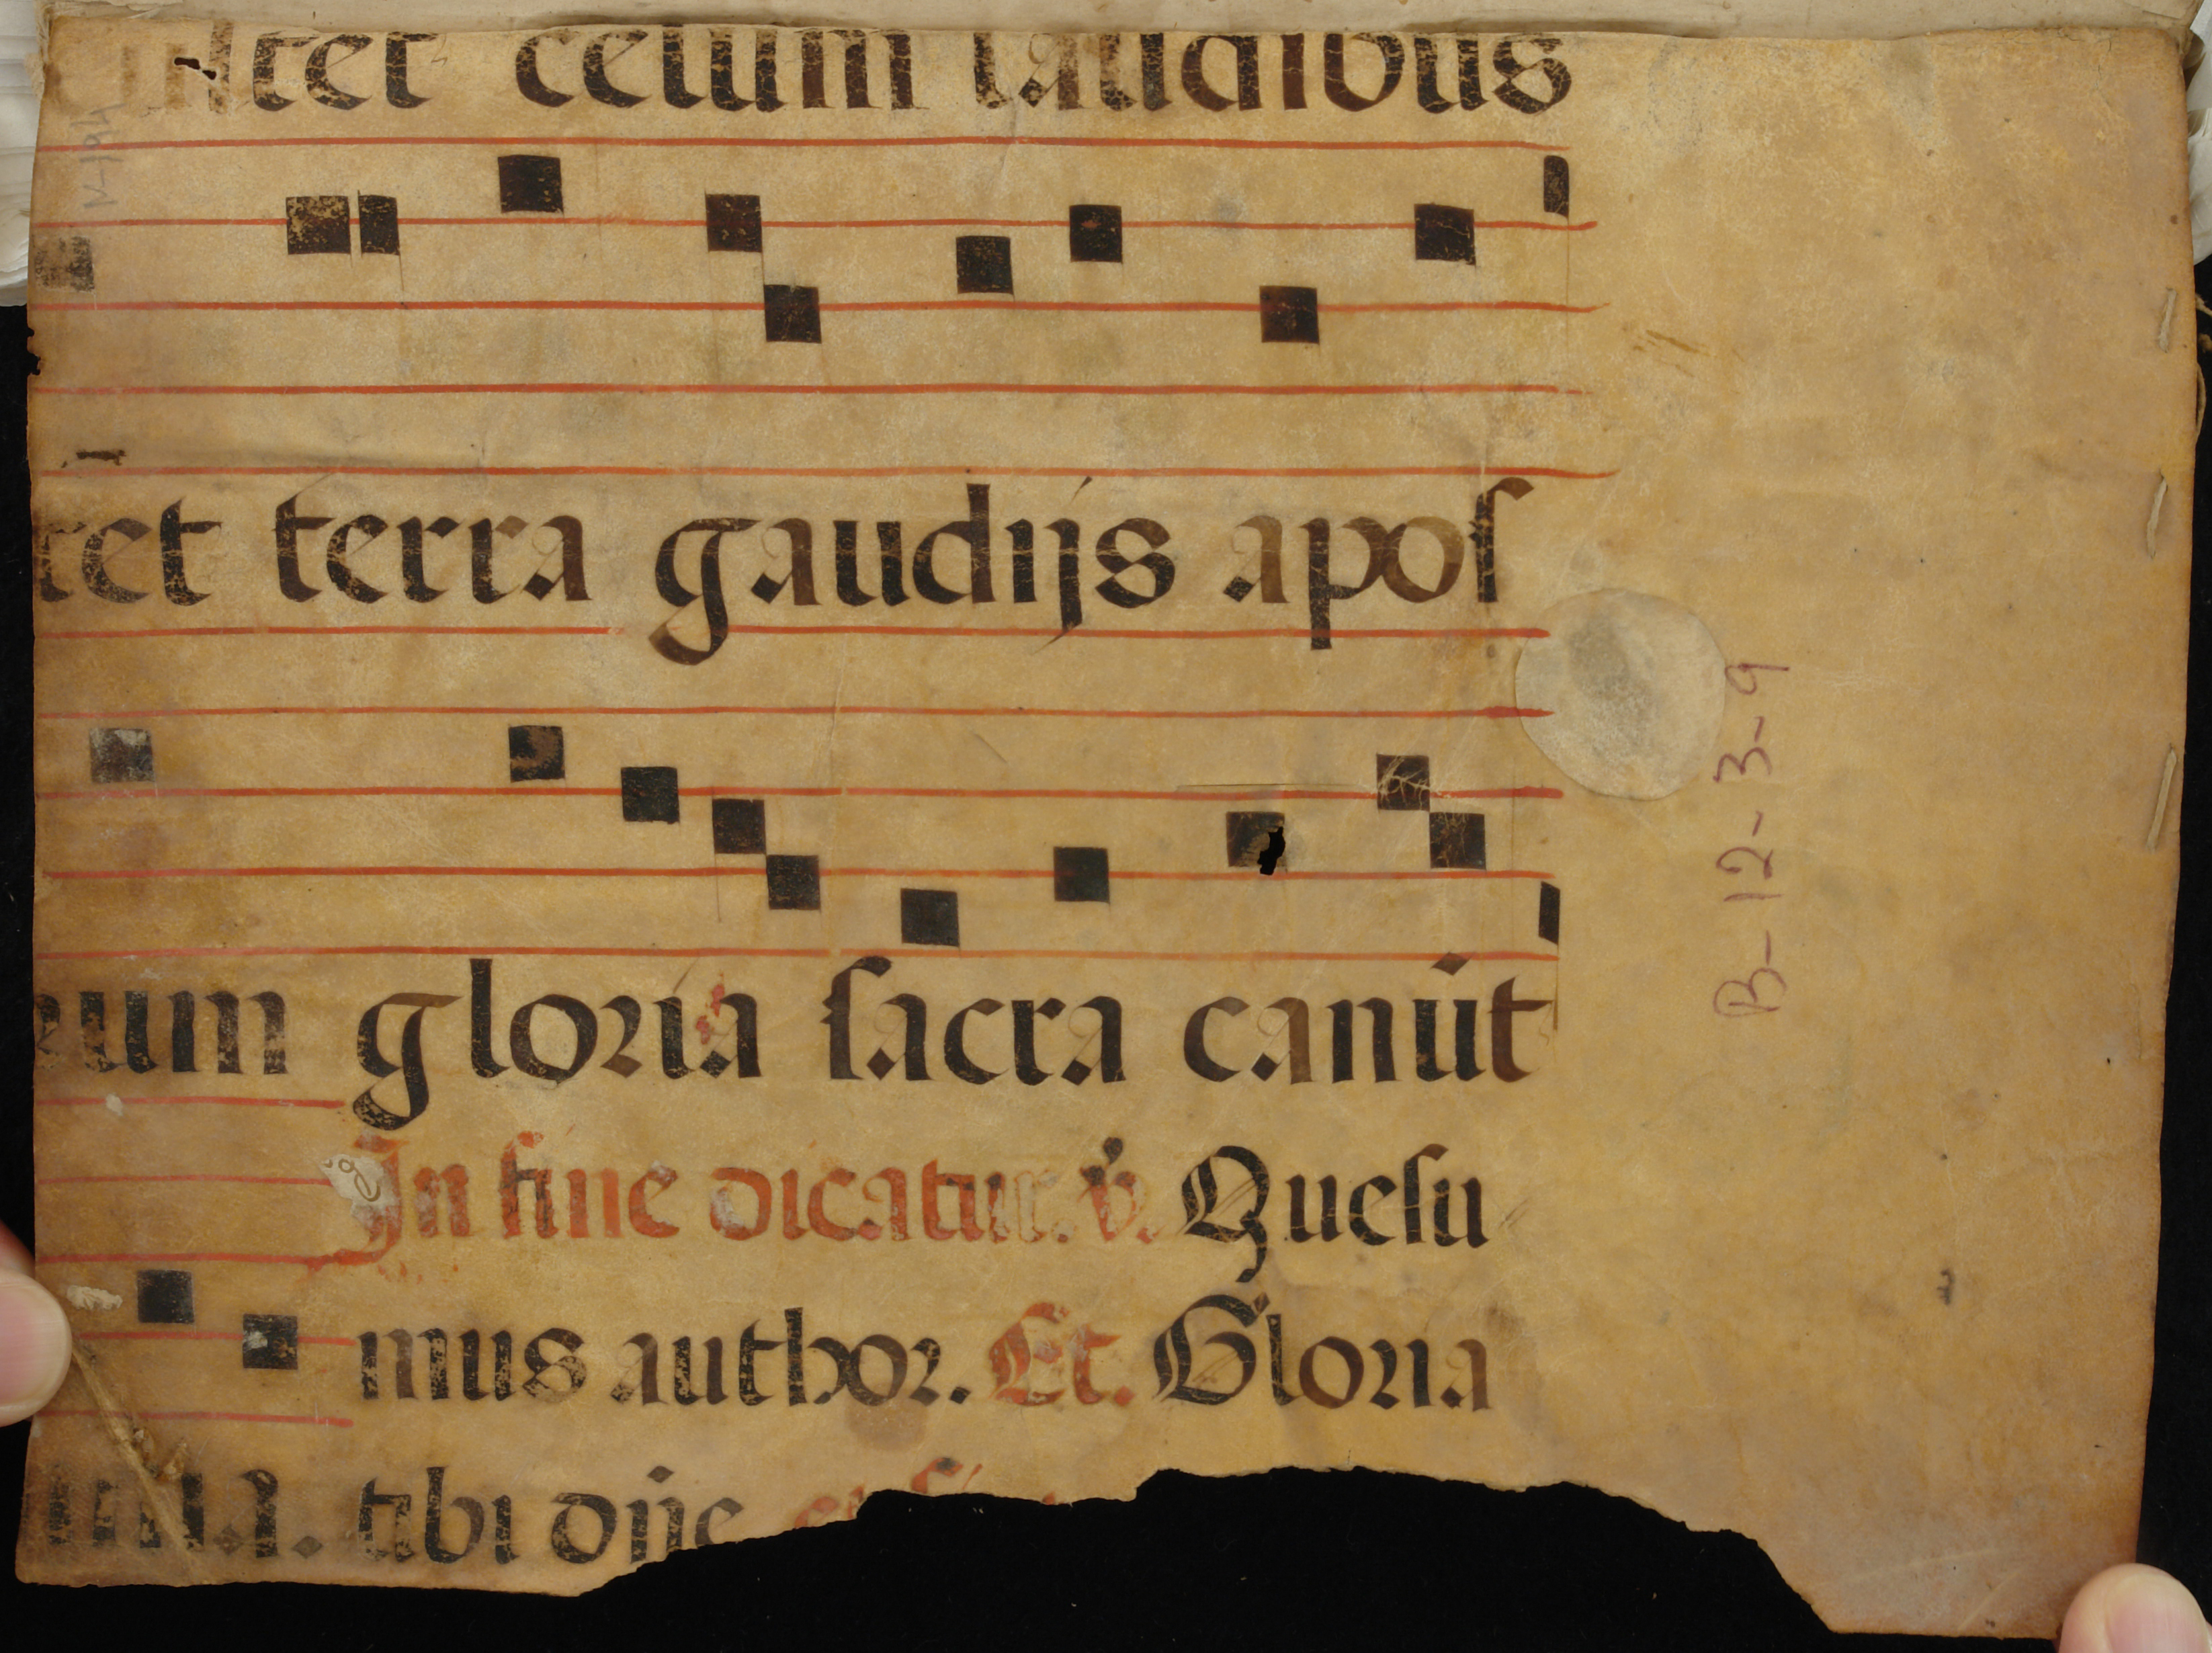 ultet celum laudibus
tet terra gaudijs apos
rum gloria sacra canūt
In fine dicatur. v̇. Quesu
mus author. Et. Gloria
tibi dn̄e
B-12-3-9